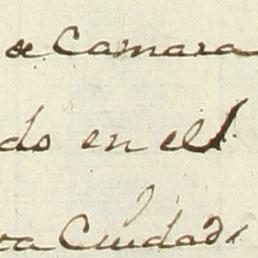 de Camara
do en el
ta Ciudad